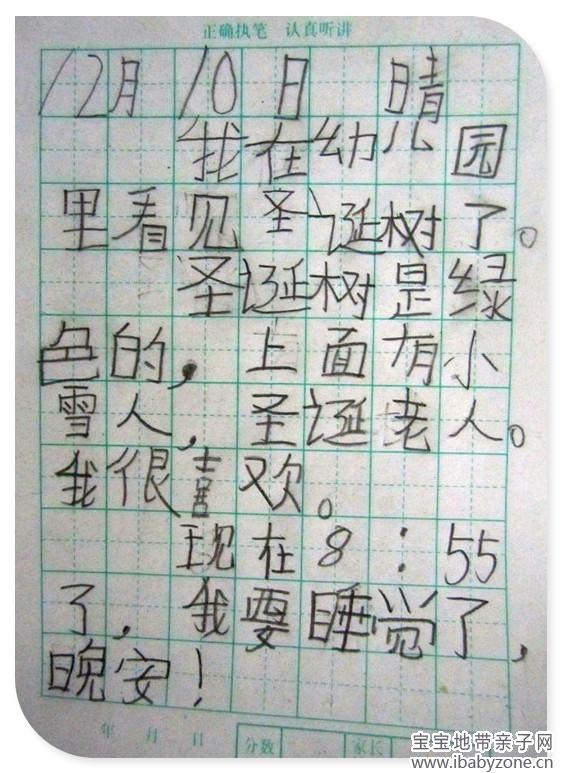 正确执笔 认真听讲
12月10日 晴
我在幼儿园
里看见圣诞树了。
圣诞树是绿
色的，上面有小
雪人，圣诞老人。
我很喜欢。
现在8：55
了，我要睡觉了，
晚安！
年 月 日
分数 家长
宝宝地带亲子网
www.ibabyzone.cn